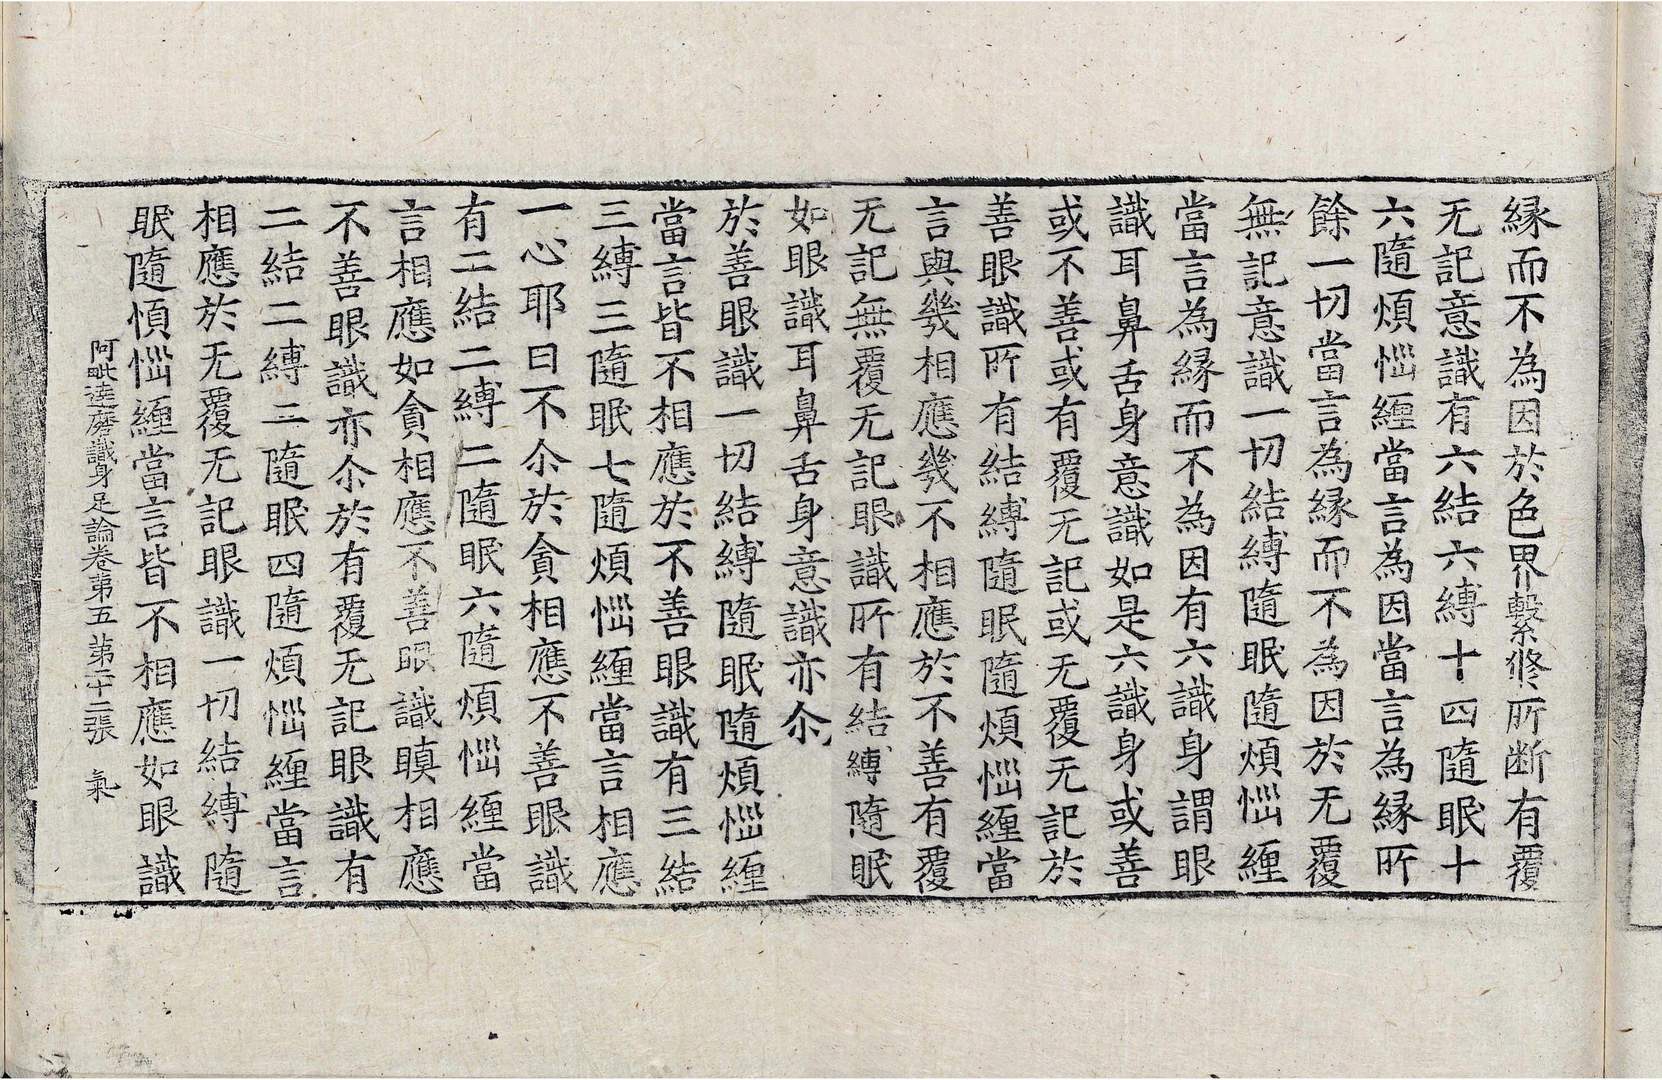 縁而不為因於色界繫修所断有覆
无記意識有六結六縛十四隨眠十
六隨煩惱纒當言為因當言為縁所
餘一切當言為縁而不為因於无覆
無記意識一切結縛隨眠隨煩惱纒
當言為縁而不為因有六識身謂眼
識耳鼻舌身意識如是六識身或善
或不善或有覆无記或无覆无記於
善眼識所有結縛隨眠隨煩惱纒當
言與幾相應幾不相應於不善有覆
无記無覆无記眼識所有結縛隨眠
如眼識耳鼻舌身意識亦尒
於善眼識一切結縛隨眠隨煩惱纒
當言皆不相應於不善眼識有三結
三縛三隨眠七隨煩惱纒當言相應
一心耶曰不尒於貪相應不善眼識
有二結二縛二隨眠六隨煩惱纒當
言相應如貪相應不善眼識瞋相應
不善眼識亦尒於有覆无記眼識有
二結二縛二隨眠四隨煩惱纒當言
相應於无覆无記眼識一切結縛隨
眠隨煩惱纒當言皆不相應如眼識
阿毗達磨識身足論卷第五 第二十二張 氣